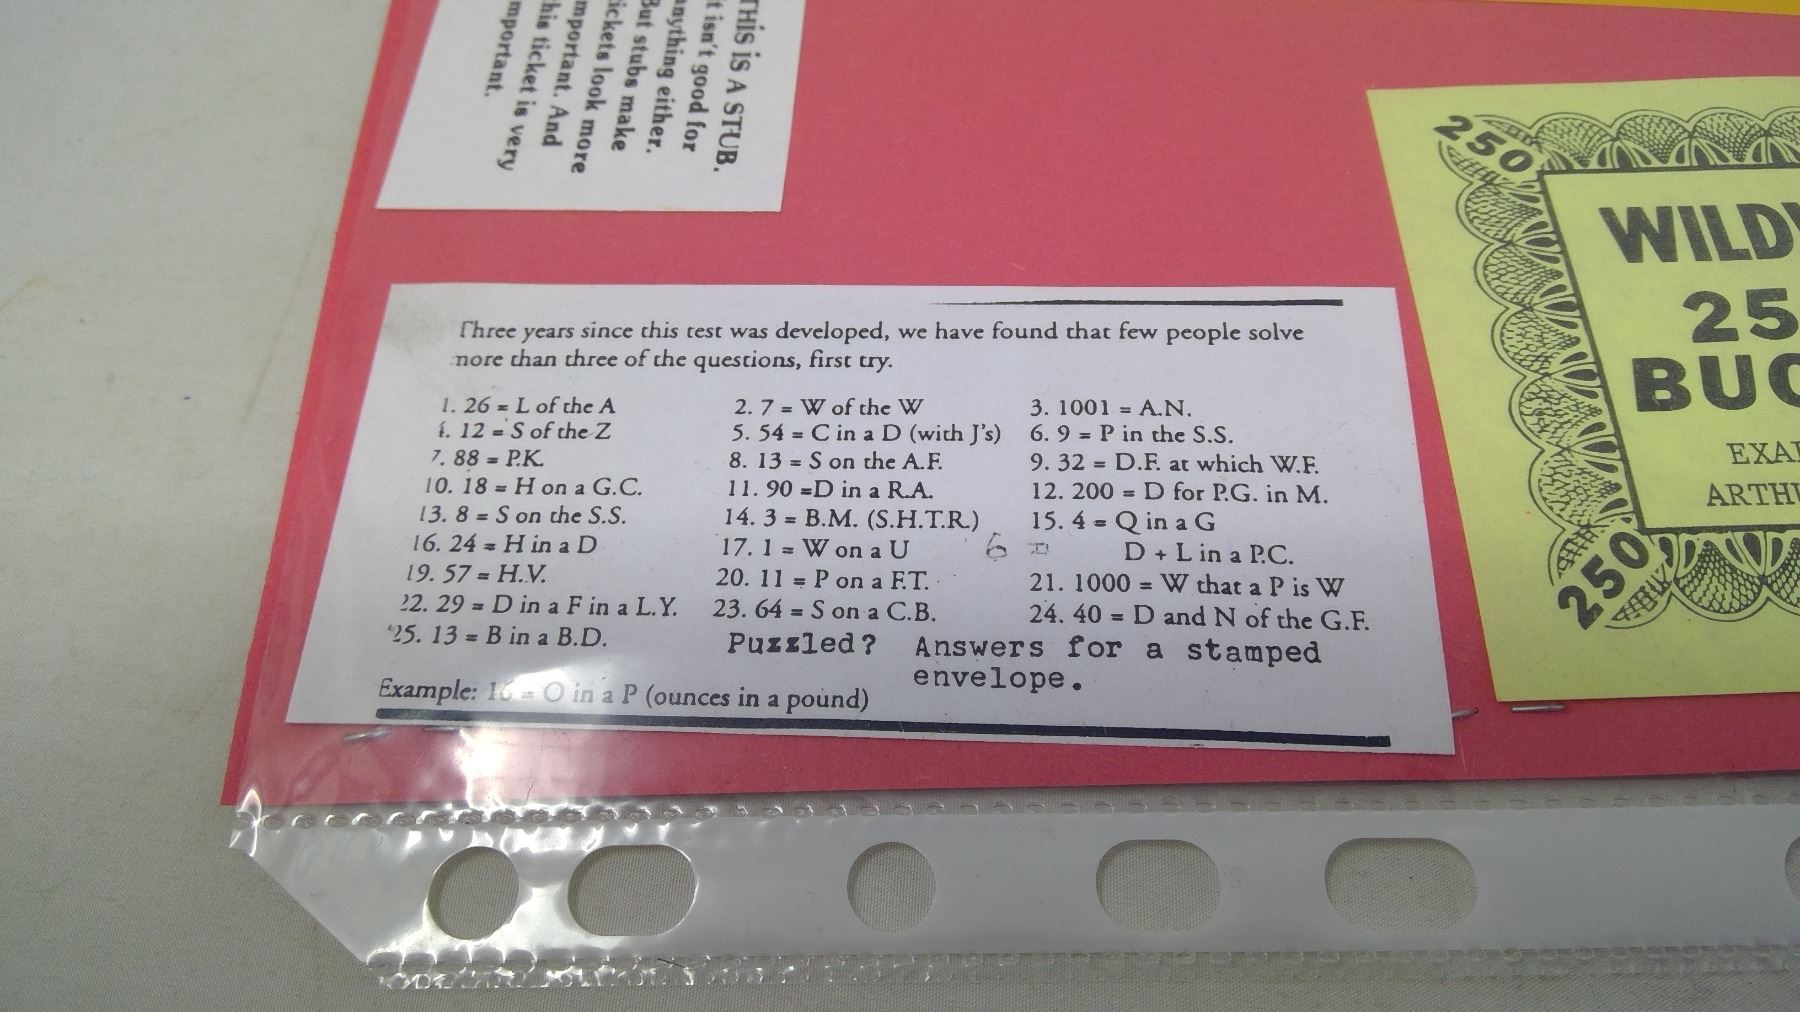 THIS IS A STUB.
t isn't good for
anything either.
But stubs make
ickets look more
mportant. And
his ticket is very
mportant.
250
WILD
25
BUC
EXA
ARTHU
250
Three years since this test was developed, we have found that few people solve
more than three of the questions, first try.
1. 26 = L of the A 2. 7 = W of the W 3. 1001 = A.N.
4. 12 = S of the Z 5. 54 = C in a D (with J's) 6. 9 = P in the S.S.
7. 88 = P.K. 8. 13 = S on the A.F. 9. 32 = D.F. at which W.F.
10. 18 = H on a G.C. 11. 90 =D in a R.A. 12. 200 = D for P.G. in M.
13. 8 = S on the S.S. 14. 3 = B.M. (S.H.T.R.) 15. 4 = Q in a G
16. 24 = H in a D 17. 1 = W on a U 6 = D + L in a P.C.
19. 57 = H.V. 20. 11 = P on a F.T. 21. 1000 = W that a P is W
22. 29 = D in a F in a L.Y. 23. 64 = S on a C.B. 24. 40 = D and N of the G.F.
25. 13 = B in a B.D. Puzzled? Answers for a stamped
envelope.
Example: 16 = O in a P (ounces in a pound)